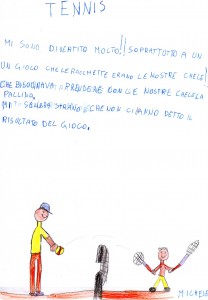 TENNIS
MI SONO DIVERTITO MOLTO!! SOPRATTUTTO A UN
UN GIOCO CHE LE RACCHETTE ERANO LE NOSTRE CACCE!
CHE BISOGNAVA PRENDERE CON LE NOSTRE CACCE LA
PALLINA,
SQUADRE STRANO CHE NON CI HANNO DETTO IL
RISULTATO DEL GIOCO.
MICHELE